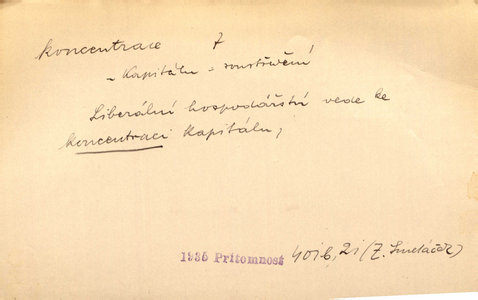 koncentrace 7
~ kapitálu = soustřeďění
Liberální hospodářství vede ke
koncentraci kapitálu,
1935 Přítomnost 401b, 2i (Z. Smetáček)